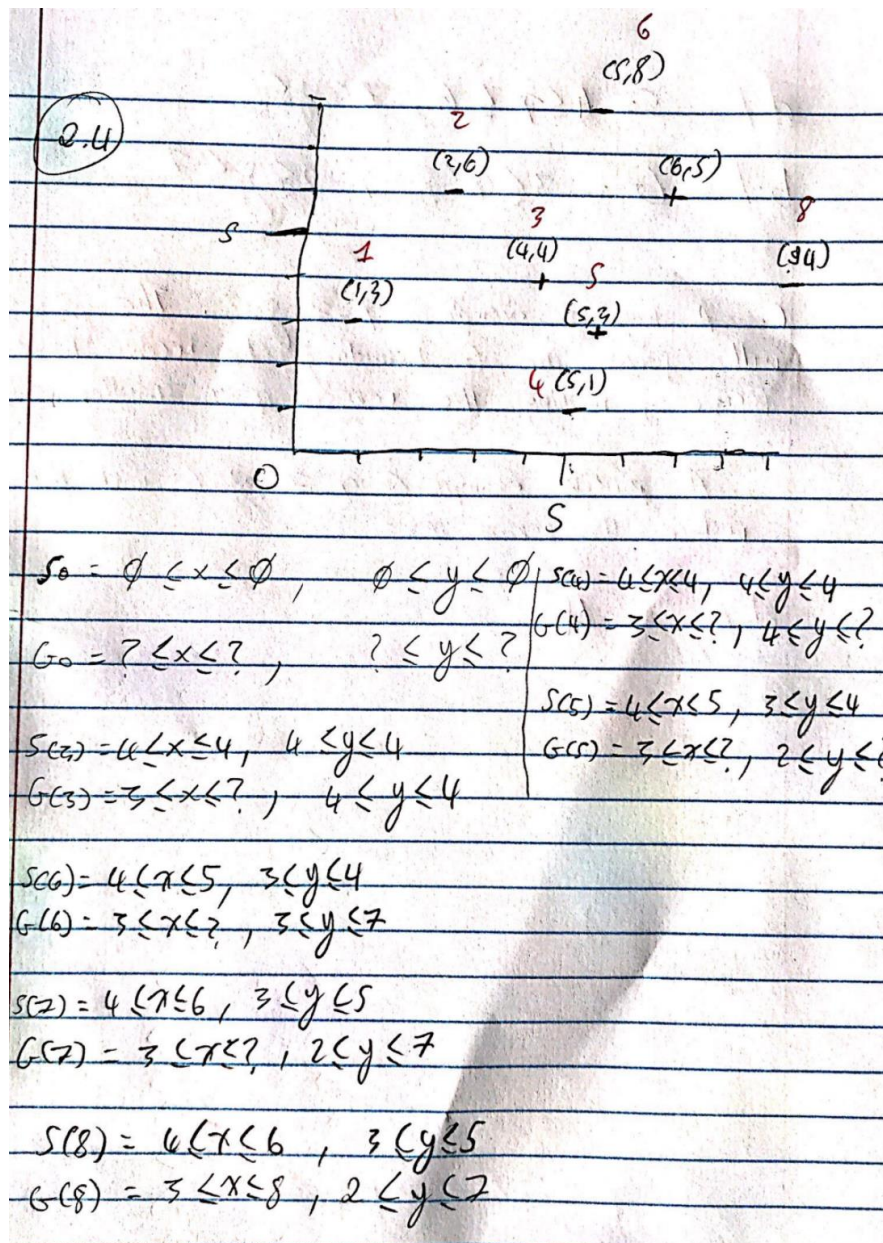 2.4
6
(5,8)
2
(2,6)
(6,5)
8
3
5
1
(4,4)
(9,4)
5
(1,3)
(5,3)
4 (5,1)
0
5
S₀ = ∅ ≤ x ≤ ∅, ∅ ≤ y ≤ ∅
G₀ = ? ≤ x ≤ ?, ? ≤ y ≤ ?
S(3) = 4 ≤ x ≤ 4, 4 ≤ y ≤ 4
G(3) = 3 ≤ x ≤ ?, 4 ≤ y ≤ 4
S(4) = 4 ≤ x ≤ 4, 4 ≤ y ≤ 4
G(4) = 3 ≤ x ≤ ?, 4 ≤ y ≤ ?
S(5) = 4 ≤ x ≤ 5, 3 ≤ y ≤ 4
G(5) = 3 ≤ x ≤ ?, 2 ≤ y ≤
S(6) = 4 ≤ x ≤ 5, 3 ≤ y ≤ 4
G(6) = 3 ≤ x ≤ ?, 3 ≤ y ≤ 7
S(7) = 4 ≤ x ≤ 6, 3 ≤ y ≤ 5
G(7) = 3 ≤ x ≤ ?, 2 ≤ y ≤ 7
S(8) = 4 ≤ x ≤ 6, 3 ≤ y ≤ 5
G(8) = 3 ≤ x ≤ 8, 2 ≤ y ≤ 7